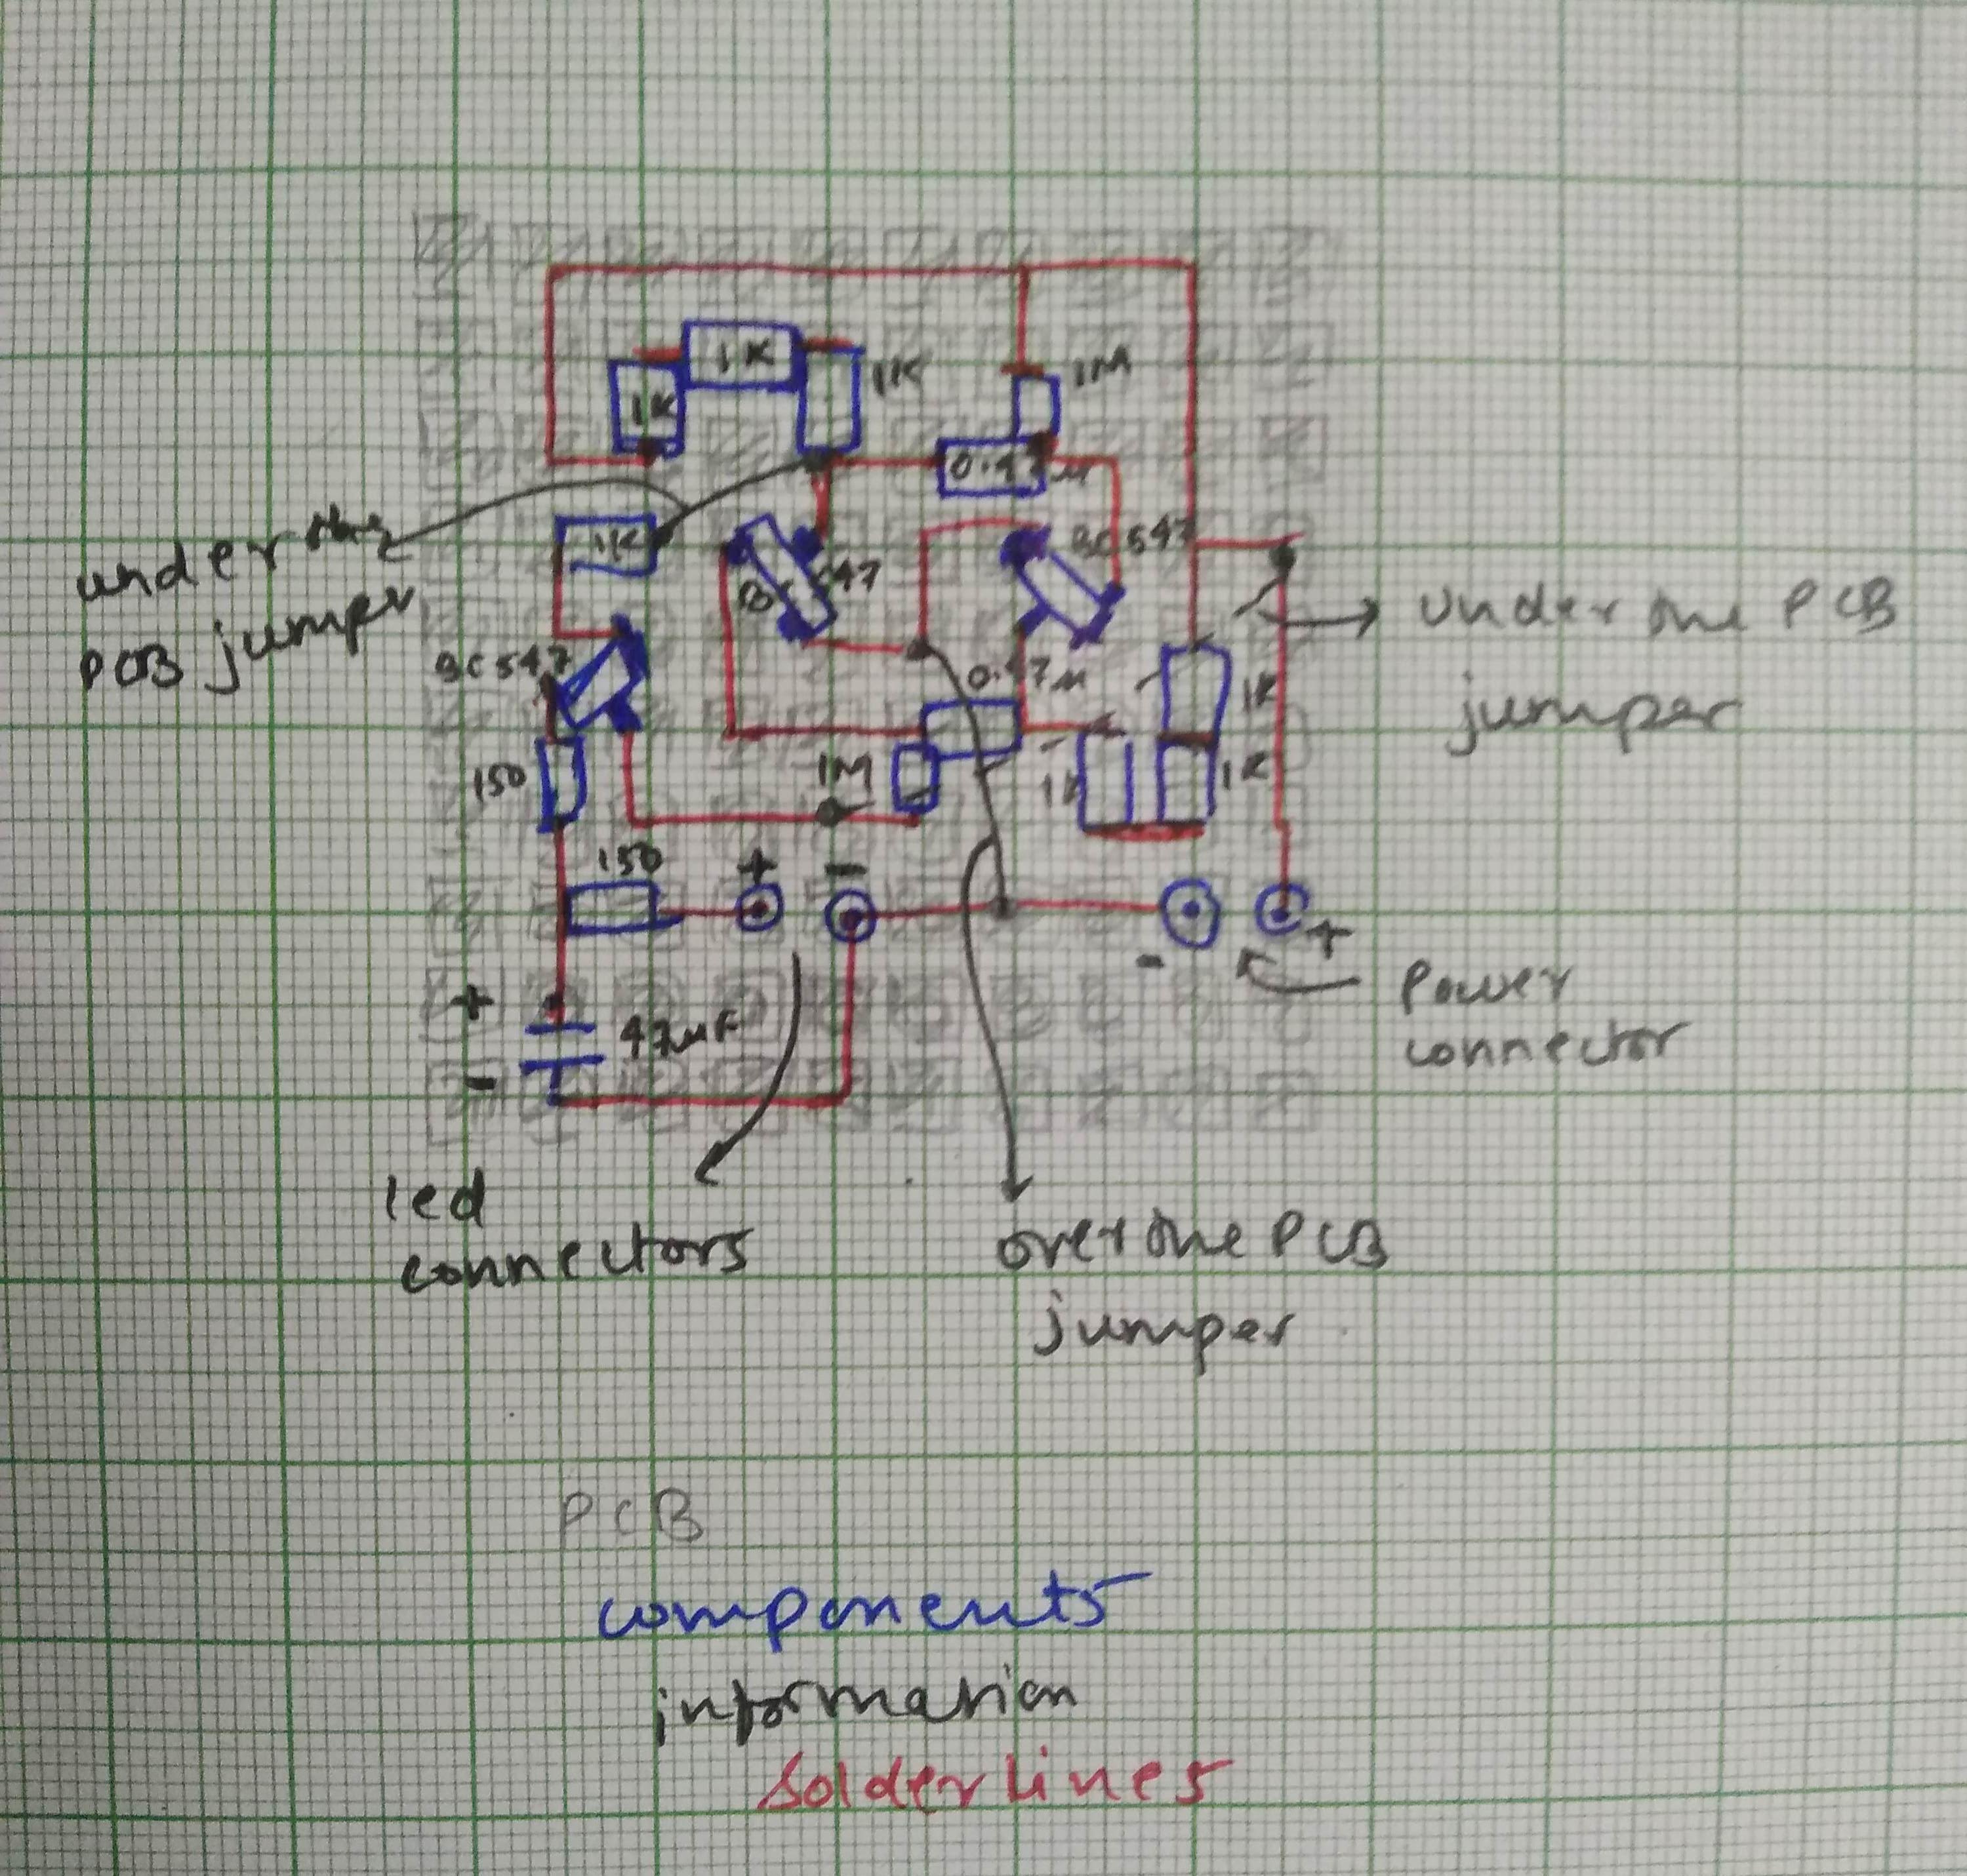 1K
1K
1K
1M
0.47M
under the
PCB jumper
1K
BC547
BC547
under the PCB
jumper
BC547
0.47M
1K
150
1M
1K
1K
150
+
-
-
+
Power
connector
+
47MF
-
led
connectors
over the PCB
jumper
PCB
components
information
Solder lines